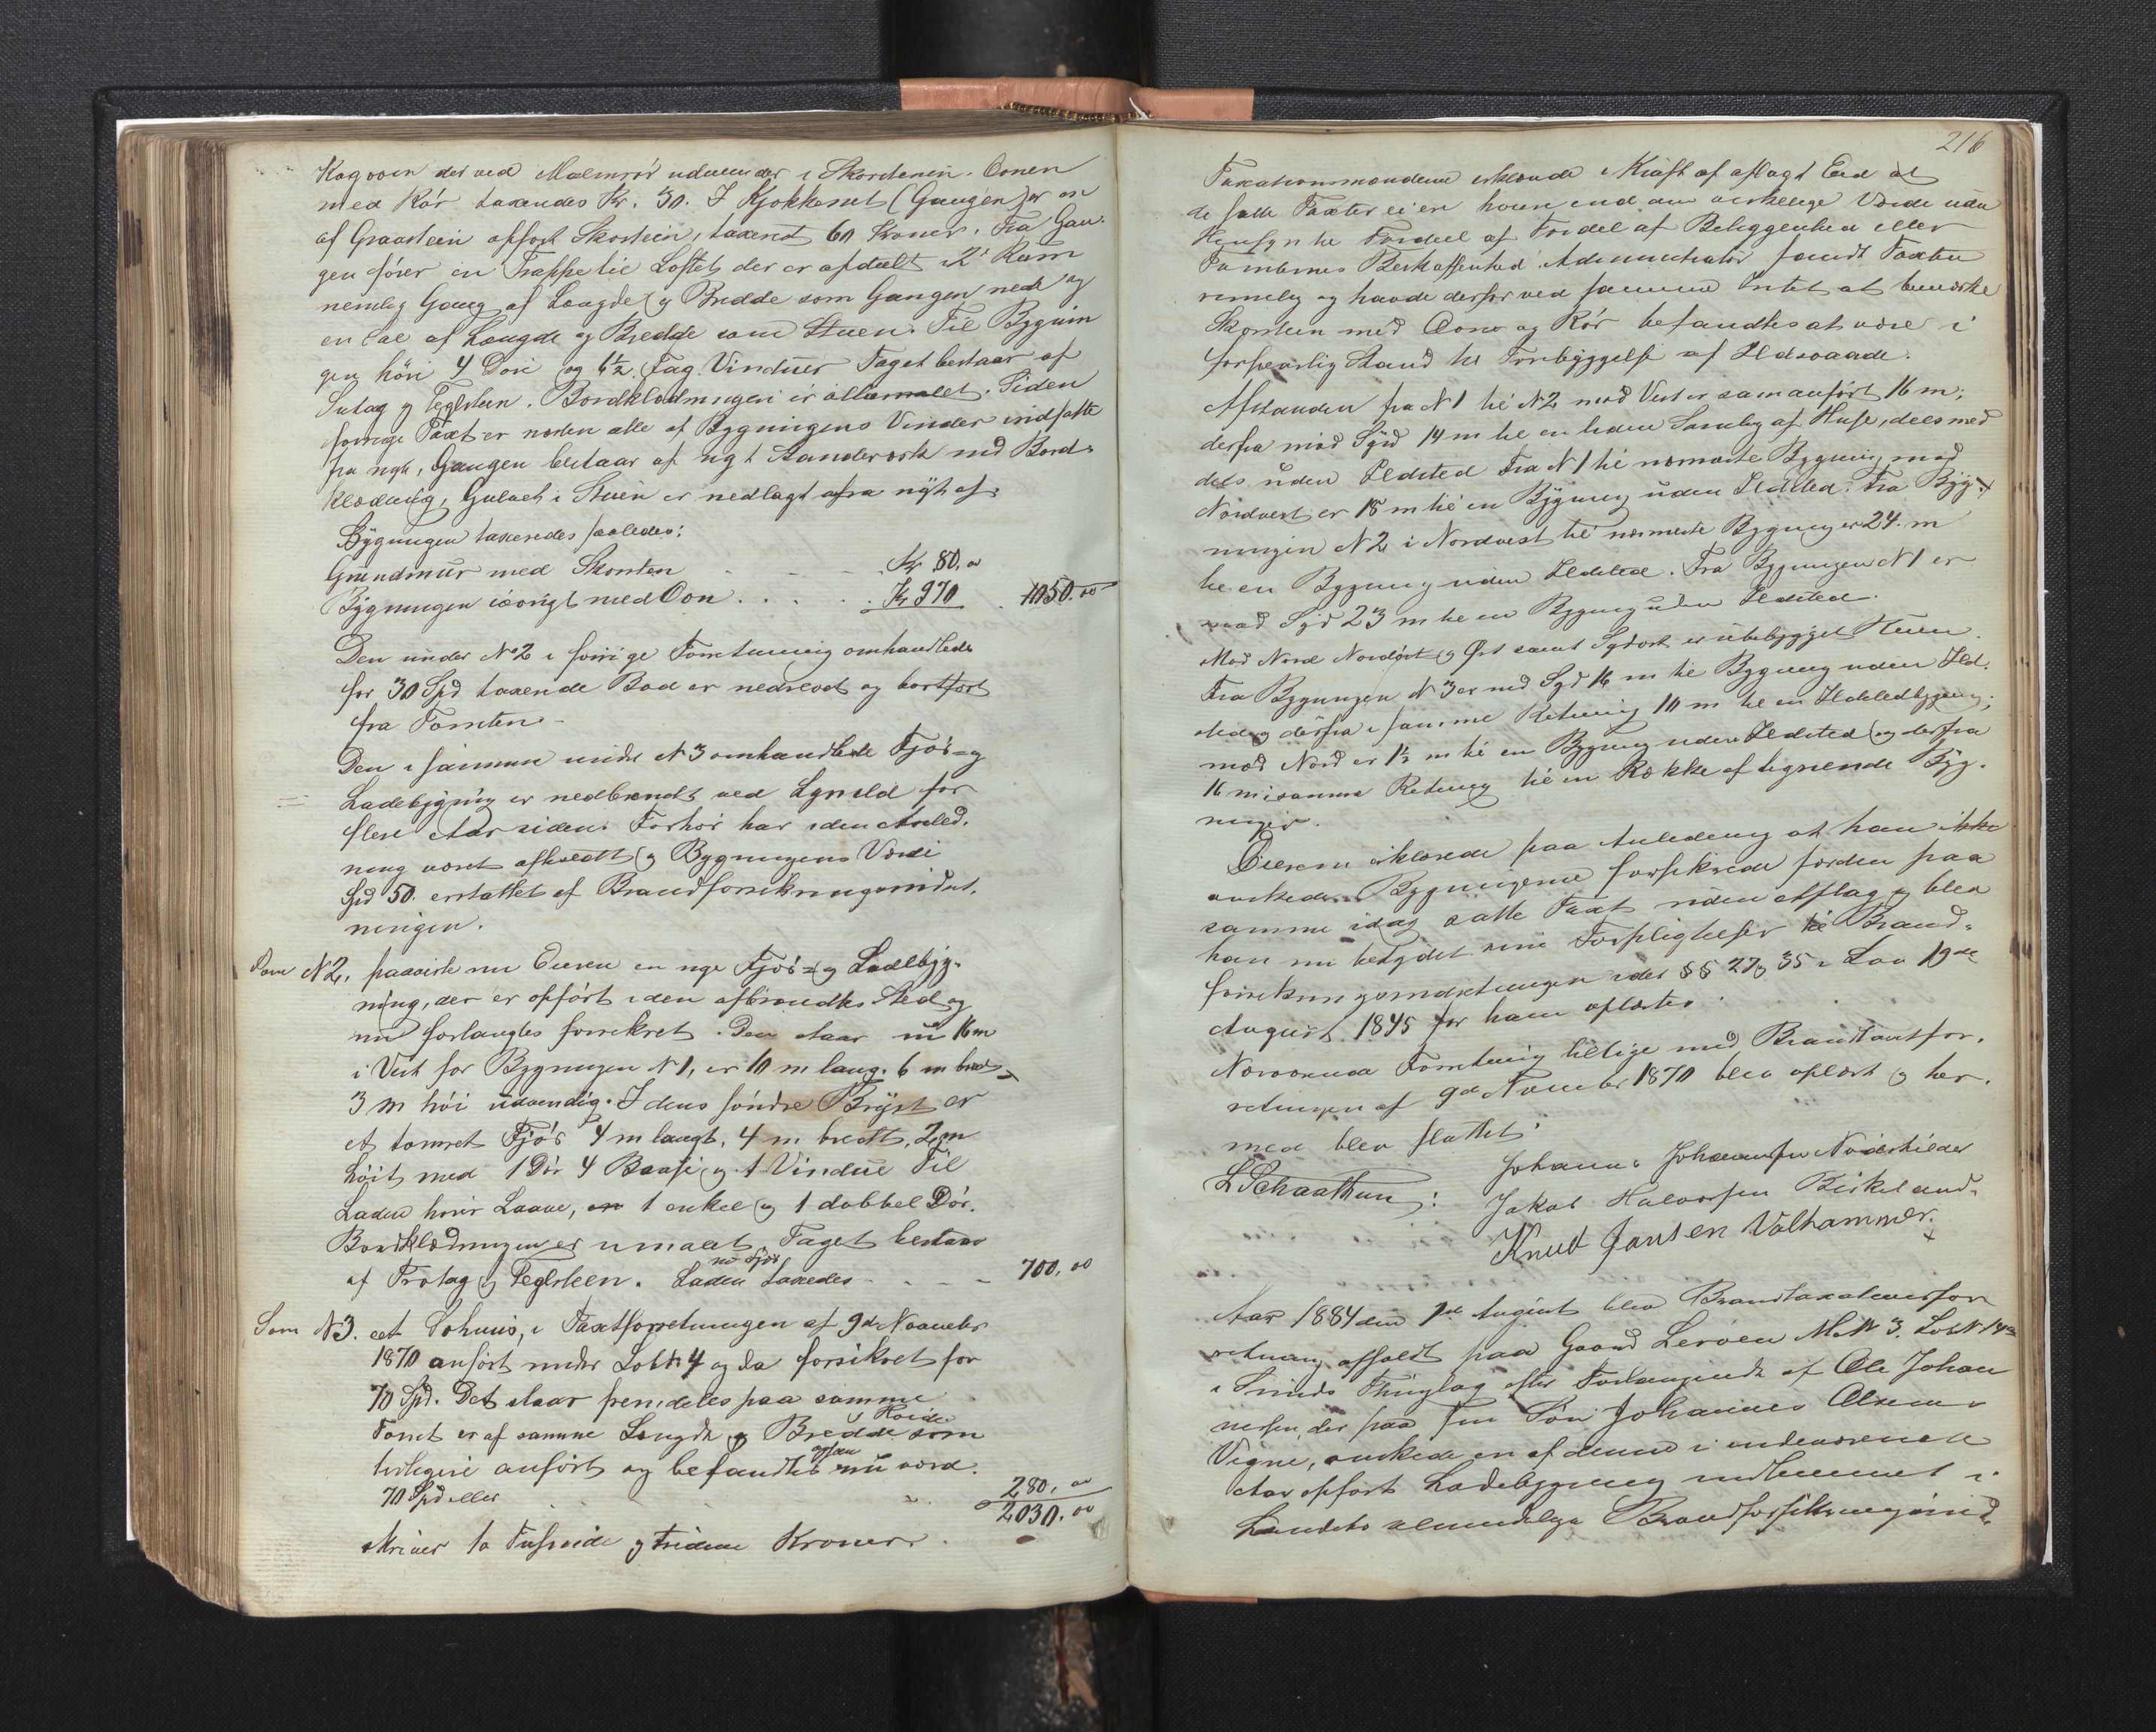 Kogovn der ved Malmrör udmunder i Skorstenen. Ovnen
med Rör taxeredes Kr. 30. I Kjøkkenet (Gangen) er en
af Graasteen opført Skorsteen, taxeret 60 Kroner. Fra Gan-
gen fører en Trappe til Loftet, der er afdeelt i 2 Rum
nemlig Gang af Længde og Bredde som Gangen nede og
en Sal af Længde og Bredde som Stuen. Til Bygnin
gen höre 4 Döre og 6½ Fag Vinduer Taget bestaar af
Sutag og Teglsteen. Bordklædningen er allemalet. Siden
forrige Taxt er næsten alle af Bygningens Vinduer indsatte
fra nyt, Gangen bestaar af nyt Standerværk med Bord-
klædning, Gulvet i Stuen er nedlagt afra nyt af.
Bygningen taxeredes saaledes:
Grundmur med Skorsten - - - Kr 80.00
Bygningen iøvrigt med Ovn . . . . Kr 970 . 1050.00
Den under No 2 i forrige Forretning omhandlede
for 30 Spd taxerede Bod er nedrevet og bortført
fra Tomten.
Den i samme under N 3 omhandlede Fjøs- og
Ladebygning er nedbrændt ved Lynild for
flere Aar siden. Forhör har i den Anled-
ning været afholdt og Bygningens Værdi
Spd 50. erstattet af Brandforsikringsindret-
ningen.
Som N 2. paaviste nu Eieren en nye Fjøs- og Ladebyg-
ning, der er opført i den afbrændtes Sted og
nu forlanges forsikret. Den staar nu 16 m
i Vest for Bygningen N 1, er 10 m lang. 6 m bred
3 m höi udvendig. I dens søndre Bryst er
et tømret Fjøs 4 m langt, 4 m bredt, 2 m
höit med 1 Dör 4 Baase og 1 Vindue Til
Laden hører Laave, 1 enkel og 1 dobbel Dör.
Bordklædningen er umalet Taget bestaar
med Fjøs
af Trotag og Teglsteen. Laden taxedes - - - - 700,00
Som N 3. et Söhuus, i Taxtforretningen af 9de November
1870 anført under Lobn 4 og da forsikret for
70 Spd. Det staar fremdeles paa samme
Höide
Tomt er af samme Længde og Bredde som
tidligere anført og befandtes nu værd.
70 Spd eller . . . 280,00
2030.00
skriver to Tusinde og tredive Kroner.
216
Taxationsmændene erklærede i Kraft af aflagt Eed at
de satte Taxter ei ere høiere end den virkelige Værdi uden
Hensyn til Fordeel af Fordel af Beliggenhed eller
Tomternes Beskaffenhed. Administrator fandt Taxten
rimelig og havde derfor ved samme Intet at bemærke
Skorsteen med Ovne og Rör befandtes at være i
forsvarlig Stand til Forebyggelse af Ildsvaade.
Afstanden fra N 1 til N 2 mod Vest er som anført 16 m;
derfra mod Syd 14 m til en liden Samling af Huse, deels med
deels uden Ildsted Fra N 1 til nærmeste Bygning mod
Nordvest er 18 m til en Bygning uden Ildsted. Fra Byg-
ningen N 2 i Nordvest til nærmeste Bygning er 24 m
til en Bygning uden Ildsted. Fra Bygningen N 1 er
mod Syd 23 m til en Bygning uden Ildsted.
Mod Nord Nordöst og Öst samt Sydost er ubebygget
Fra Bygningen N 3 er mod Syd 16 m til Bygning uden Ild-
sted og derfra i samme Retning 10 m til en Ildstedbygning;
mod Nord er 1½ m til en Bygning uden Ildsted og derfra
16 m i samme Retning til en Række af lignende Byg-
ninger.
Eieren erklærede paa Anledning at han ikke
ønskede Bygningerne forsikrede forden paa
samme idag satte Taxt uden Afslag og blev
han nu betydet sine Forpligtelser til Brand-
forsikringsindretningen idet §§ 27 og 35 i Lov 19de
August 1845 for ham oplæstes.
Nærværende Forretning tillige med Brandtaxtfor-
retningen af 9de November 1870 blev oplæst og her-
med blev sluttet:
L Schaathun: Johannes Johannesen Norderhildes
Jakob Halvorsen Birkeland.
Knud Jansen Valhammer.
Aar 1884 den 7de August blev Brandtaxationsfor
retning afholdt paa Gaard Leröen M N 3. Lob N 14
i Sunds Thinglag efter Forlangende af Ole Johan
nesen, der paa sin Sön Johannes Olsens
Vegne, ønskede en af denne i indeværende
Aar opført Ladebygning indlemmet i
Landets almindelige Brandforsikringsind-